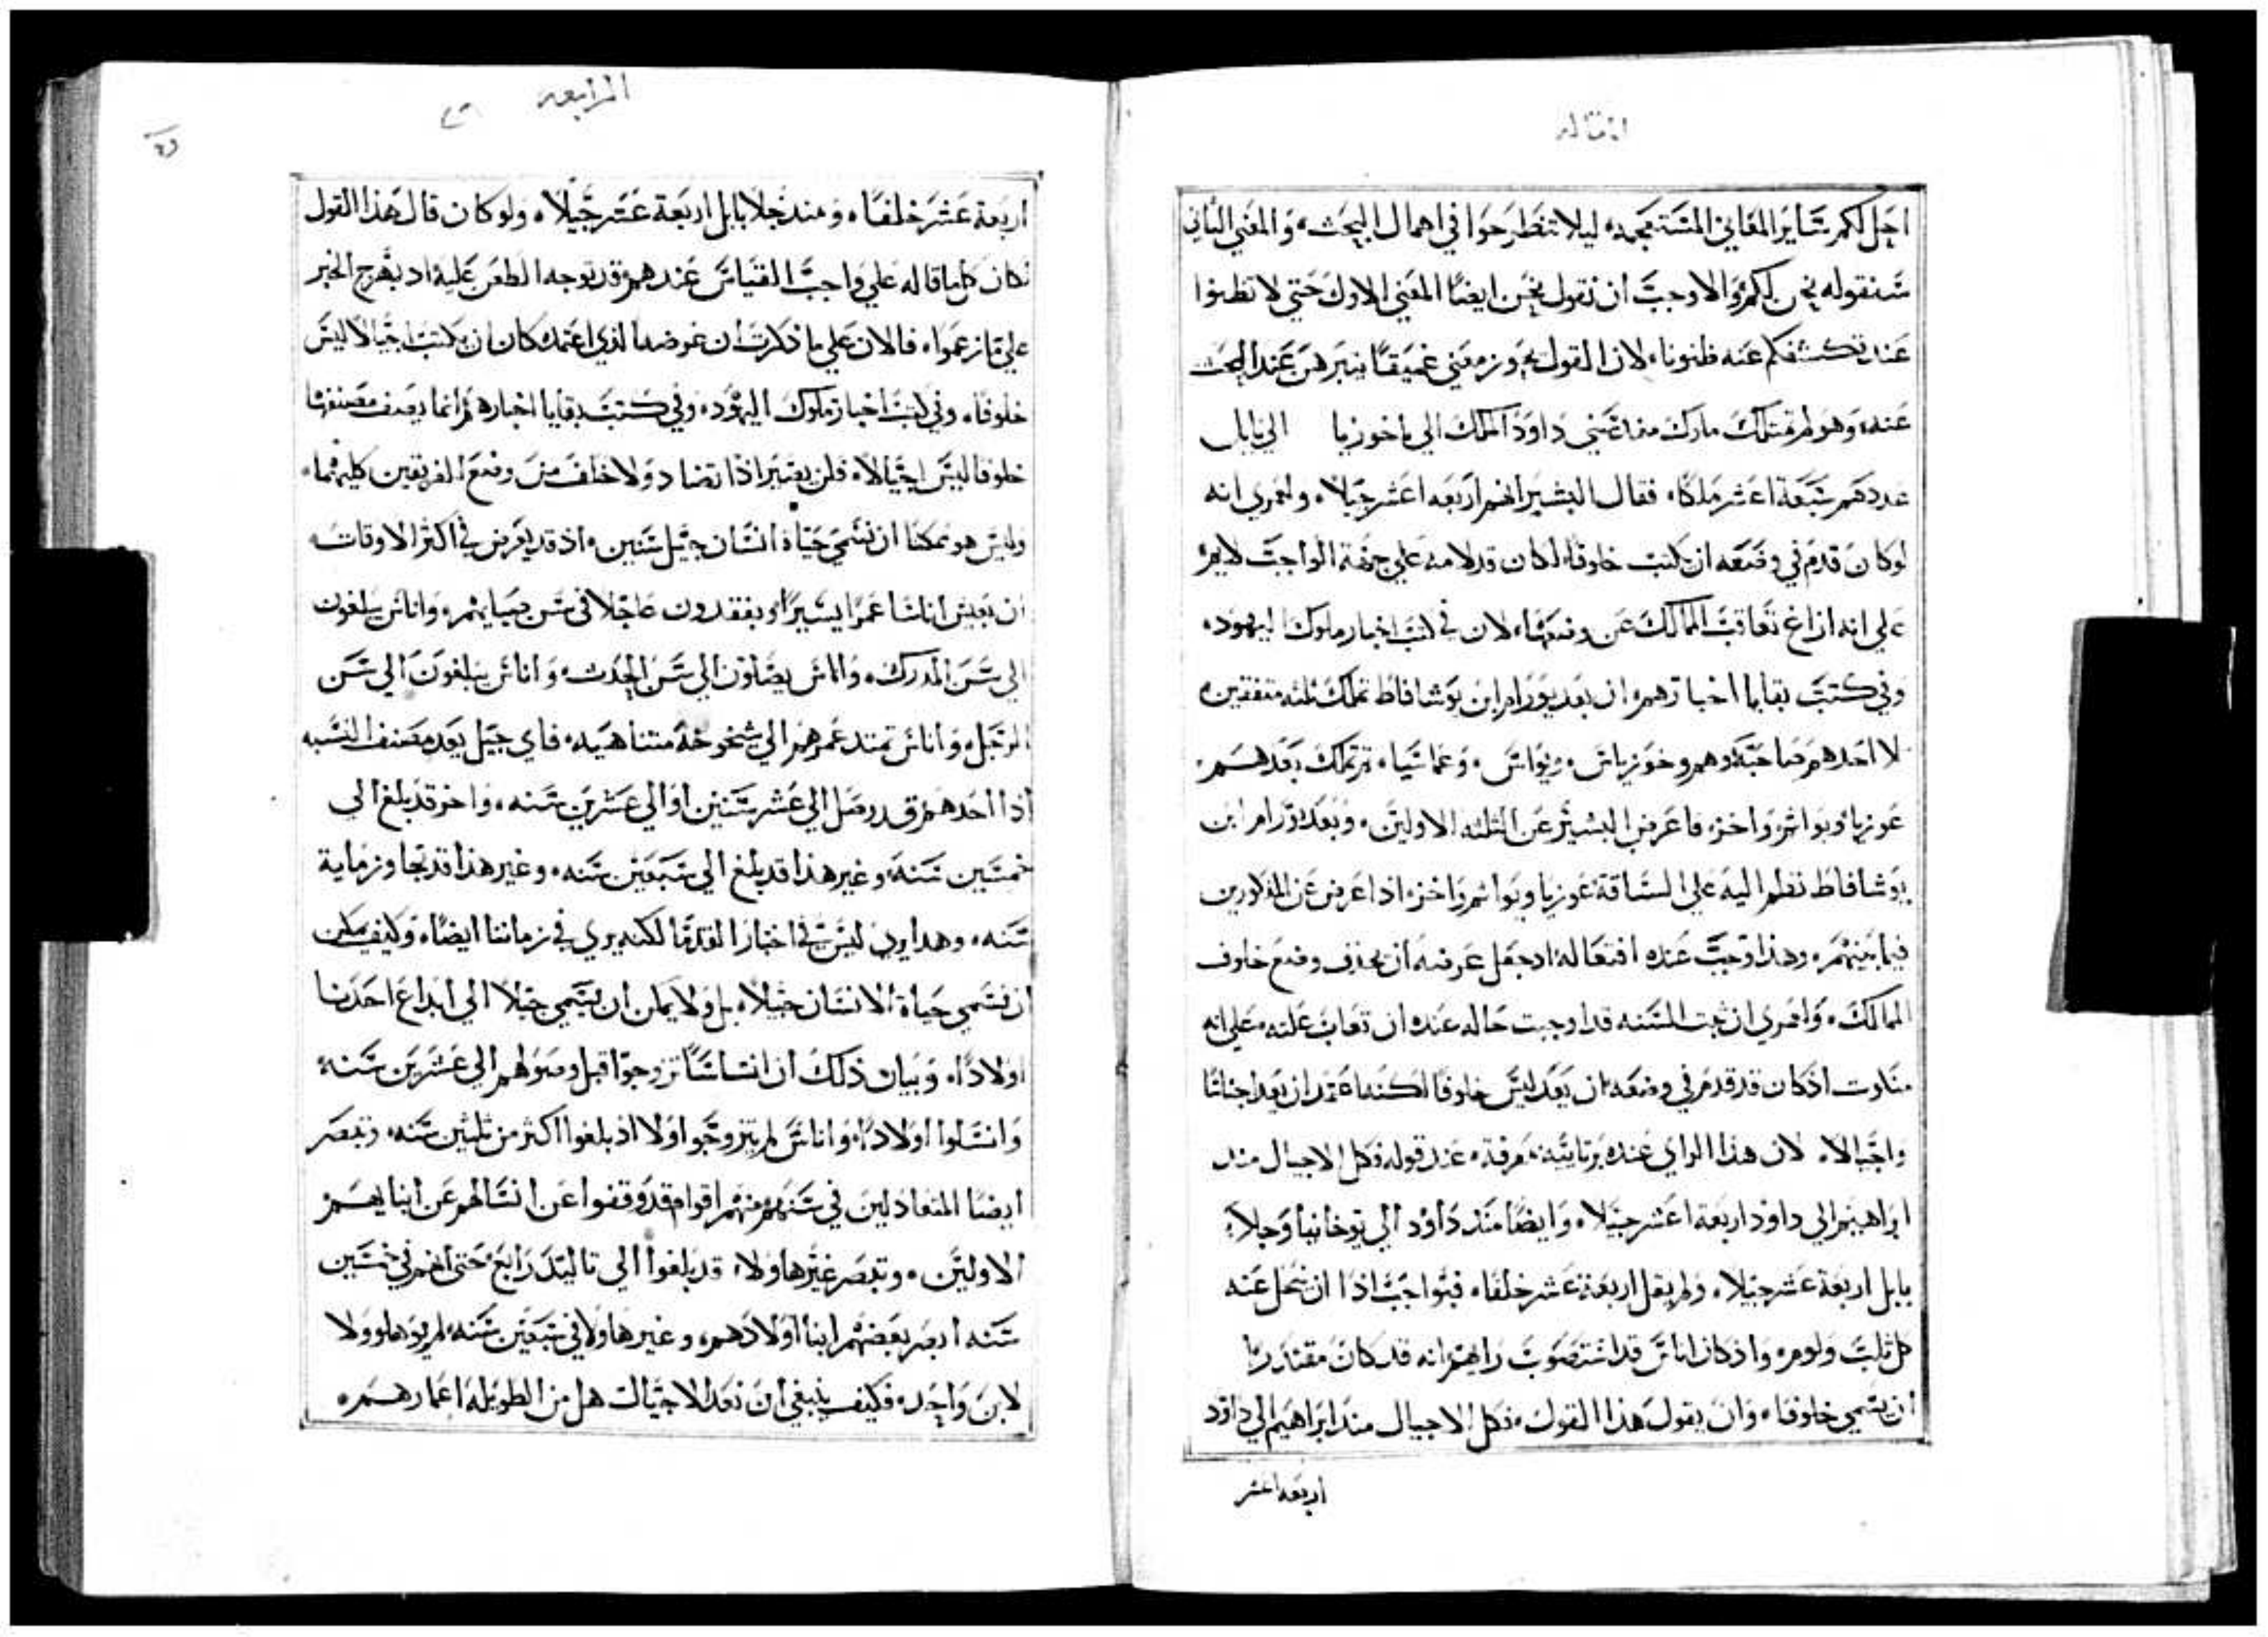 المقاله
احل لكم ساير المعاني المستعجمه ليلا تنطرحوا في اهمال البحث والمعني الثاني
سنقوله نحن لكم والاوجب ان نقول نحن ايضا المعني الاول حتي لا تظنوا
عند تكشفكم عنه ظنونا لان القول يحوز معني عميقا يتبرهن عند البحث
عنه وهو لم تملك مذ داود الملك الي ياخونيا الي بابل
عددهم سبعة اعشر ملكا فقال البشير انهم اربعه اعشر جيلا ولعمري انه
لوكان قدم في وضعه ان يكتب خلوفا لكان قد لامه علي جهة الواجب لايم
علي انه ازاغ تعاقب الممالك عن وضعها لان في كتب اخبار ملوك اليهود
وفي كتب بقايا اخبارهم ان بعد يورام ابن يوشافاط تملك ثلثه متفقين
لا احدهم صاحبه وهم وخوزياس ويواس وعماسيا ثم تملك بعدهم
عوزيا ويواثم واخز فاعرض البشير عن الثلثه الاولين وبعد يورام ابن
يوشافاط نظم اليه علي الساقة عوزيا ويواثم واخز اذا اعرض عن المذكورين
فيما بينهم وهذا وجب عنده افتعاله اذ جعل غرضه ان يحذف وضع خلوف
الممالك ولعمري ان كتب السنه قد اوجبت حاله عنده ان تعاب علته علي انه
متاوت اذ كان قد قدم في وضعه ان يعد ليس خلوفا لكنه اعتمد ان يعد اجناسا
واجيالا لان هذا الراي عنده عند قوله فكل الاجيال منذ
ابراهيم الي داود اربعة اعشر جيلا وايضا منذ داود الي يوخانيا وجلا
بابل اربعة عشر جيلا ولم يقل اربعة عشر خلفا فبواجب اذا ان نحل عنه
كل ثلب ولوم واذ كان اناس قد استصوب رايهم انه قد كان مقتدرا
ان يسمي خلوفا وان يقول هذا القول فكل الاجيال منذ ابراهيم الي داود
اربعه اعشر
الرابعه
اربعة عشر خلفا ومنذ جلا بابل اربعة عشر جيلا ولو كان قال هذا القول
لكان كل ما قاله علي واجب القياس عندهم وقد توجه الطعن عليه اذ بهرج الخبر
علي ما زعموا فالان علي ما ذكرت ان غرضه الذي اعتمده كان ان يكتب اجيالا ليس
خلوفا وفي كتب اخبار ملوك اليهود وفي كتب بقايا اخبارهم انما يصف مصنفها
خلوفا ليس اجيالا فلن يعتبر اذا تضاد ولا خلف من وضع الفريقين كليهما
وليس هو ممكنا ان نسمي حياة انسان جيل سنين اذ قد يعرض في اكثر الاوقات
ان يعيش اناسا عمرا يسيرا ويفقدون عاجلا في سن صبايهم واناس يبلغون
الي سن المدرك واناس يصلون الي سن الحدث واناس يبلغون الي سن
الرجل واناس تمتد عمرهم الي شيخوخة متناهيه فاي جيل يعد مصنف النسبه
اذا احدهم قد وصل الي عشر سنين او الي عشرين سنه واخر قد بلغ الي
خمسين سنه وغير هذا قد بلغ الي سبعين سنه وغير هذا قد تجاوز ماية
سنه وهذا يري ليس في اخبار القدما لكنه يري في زماننا ايضا وكيف يمكن
ان نسمي حياة الانسان جيلا بل ولا يمكن ان يسمي جيلا الي ابداع احدنا
اولادا وبيان ذلك ان اناسا تزوجوا قبل وصولهم الي عشرين سنه
وانسلوا اولادا واناس لم يتزوجوا اولا اذ بلغوا اكثر من ثلثين سنه وتبصر
ايضا المتعادلين في سنهم منهم اقوام قد وقفوا عن انسالهم عن ابنايهم
الاولين وتبصر غير هاولاء قد بلغوا الي تاليد رابع حتي انهم في خمسين
سنه ابصر بعضهم ابنا اولادهم وغير هاولا في سبعين سنه لم يوهلوا ولا
لابن واحد فكيف ينبغي ان نعد الاجيال هل من الطويله اعمارهم